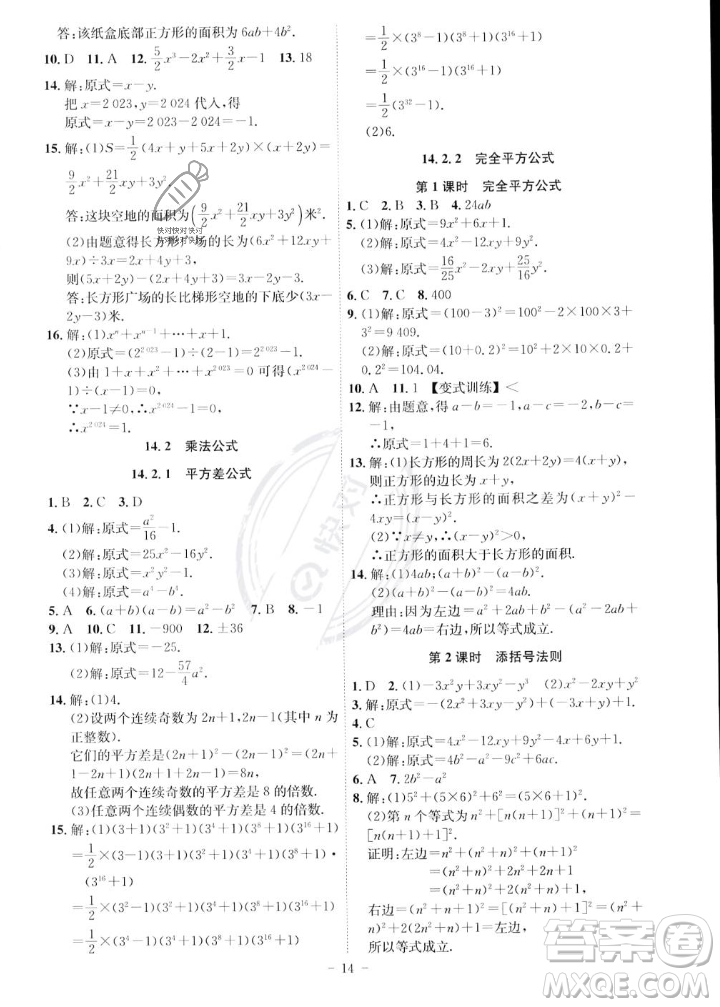 答:该纸盒底部正方形的面积为 6ab+4b².
10. D 11. A 12. 5/2x³−2x²+5/2x−1 13. 18
14. 解:原式=x−y.
把 x=2 023,y=2 024 代入,得
原式=2 023−2 024=−1.
15. 解:(1)S=1/2(4x+y+5x+2y)×(x+3y)=
9/2x²+21/2xy+3y²
答:这块空地的面积为(9/2x²+21/2xy+3y²)米².
(2)由题意得长方形广场的长为(6x²+
9x)÷(2x+3)=3x,
则(5x+2y)−(3x)=2x+2y.
16. 解:(1)xⁿ+xⁿ⁻¹+…+x+1.
(2)原式=(2²⁰²³−1)÷(2−1)=2²⁰²³−1.
∵x−1≠0,
14.2 乘法公式
14.2.1 平方差公式
1. B 2. C 3. D
4. (1)解:原式=a²/16−1.
(2)解:原式=25x²−16y².
(3)解:原式=x²y²−1.
5. A 6. (a+b)(a−b)=a²−b² 7. B 8. −1
9. A 10. C 11. −900 12. ±36
13. (1)解:原式=−25.
(2)解:原式=12−57/4a².
14. 解:(1)4.
(2)设两个连续奇数为 2n+1,2n−1(其中 n 为
正整数).
它们的平方差是(2n+1)²−(2n−1)²=(2n+
1−2n+1)(2n+1+2n−1)=8n,
故任意两个连续奇数的平方差是 8 的倍数.
(3)任意两个连续偶数的平方差是 4 的倍数.
15. 解:(1)(3+1)(3²+1)(3⁴+1)(3⁸+1)(3¹⁶+1)
=1/2×(3−1)(3+1)(3²+1)(3⁴+1)(3⁸+1)·
(3¹⁶+1)
=1/2×(3²−1)(3²+1)(3⁴+1)(3⁸+1)(3¹⁶+1)
=1/2×(3⁴−1)(3⁴+1)(3⁸+1)(3¹⁶+1)
=1/2×(3⁸−1)(3⁸+1)(3¹⁶+1)
=1/2×(3¹⁶−1)(3¹⁶+1)
=1/2×(3³²−1).
(2)6.
14.2.2 完全平方公式
第 1 课时 完全平方公式
1. C 2. B 3. B 4. 24ab
5. (1)解:原式=9x²+6x+1.
(2)解:原式=4x²−12xy+9y².
(3)解:原式=16/25x²−2xy+25/16y².
6. C 7. C 8. 400
9. (1)解:原式=(100−3)²=100²−2×100×3+
3²=9 409.
(2)解:原式=(10+0.2)²=10²+2×10×0.2+
0.2²=104.04.
10. A 11. 1 【变式训练】<
12. 解:由题意,得 a−b=−1,b−c=−1,
∴原式=1+4+1=6.
13. 解:(1)长方形的周长为 2(2x+2y)=4(x+y),
∴正方形的边长为 x+y,
∴正方形与长方形的面积之差为(x+y)²−
4xy=(x−y)².
(2)∵x≠y,∴(x−y)²>0,
∴正方形的面积大于长方形的面积.
14. 解:(1)4ab;(a−b)².
(2)(a+b)²=4ab+(a−b)².
理由:因为左边=a²+2ab+b²,右边=a²+2ab+
b²,左边=右边,所以等式成立.
第 2 课时 添括号法则
3. 解:原式=−(2x²+3xy²)+(x³+y³).
4. C
6. A 7. 2b²−a²
8. 解:(1)5²+(5×6)²+6²=(5×6+1)².
(2)第 n 个等式为 n²+[n(n+1)]²+(n+1)²=
[n(n+1)+1]².
证明:左边=n²+(n²+n)²+(n+1)²
=(n²+n)²+n²+n²+2n+1
=(n²+n)²+2(n²+n)+1,
右边=[n(n+1)+1]²=[(n²+n)+1]²=(n²+
n)²+2(n²+n)+1.
所以等式成立.
14
快对快对快对
快对
答案圈
MXQE.COM